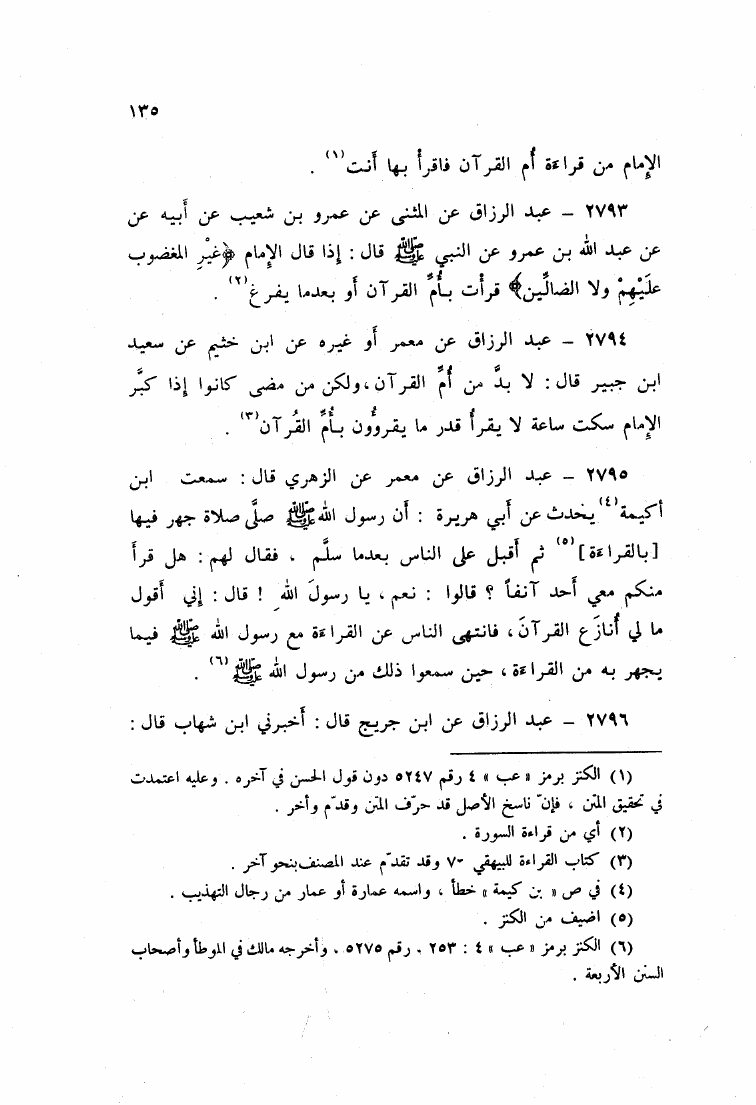 ١٣٥
الإِمام من قراءة أُم القرآن فاقرأْ بها أَنت(١) .
٢٧٩٣ – عبد الرزاق عن المثنى عن عمرو بن شعيب عن أَبيه عن
عن عبد الله بن عمرو عن النبي ﷺ قال : إِذا قال الإِمام ﴿غَيْرِ المغضوب
علَيْهِمْ ولا الضالِّين﴾ قرأْت بأُمِّ القرآن أَو بعدما يفرغ(٢) .
٢٧٩٤ – عبد الرزاق عن معمر أَو غيره عن ابن خثيم عن سعيد
ابن جبير قال : لا بدَّ من أُمِّ القرآن، ولكن من مضى كانوا إِذا كبَّر
الإِمام سكت ساعة لا يقرأُ قدر ما يقروُّون بأُمِّ القُرآن(٣) .
٢٧٩٥ – عبد الرزاق عن معمر عن الزهري قال : سمعت ابن
أكيمة(٤) يحدث عن أَبي هريرة : أَن رسول الله ﷺ صلَّى صلاة جهر فيها
[بالقراءة](٥) ثم أَقبل على الناس بعدما سلَّم ، فقال لهم : هل قرأَ
منكم معي أَحد آنفاً ؟ قالوا : نعم ، يا رسولَ الله ! قال : إِني أَقول
ما لي أُنازَع القرآنَ، فانتهى الناس عن القراءة مع رسول الله ﷺ فيما
يجهر به من القراءة ، حين سمعوا ذلك من رسول الله ﷺ(٦) .
٢٧٩٦ – عبد الرزاق عن ابن جريج قال : أَخبرني ابن شهاب قال :
(١) الكنز برمز « عب » ٤ رقم ٥٢٤٧ دون قول الحسن في آخره . وعليه اعتمدت
في تحقيق المتن ، فإنّ ناسخ الأصل قد حرّف المتن وقدّم وأخر .
(٢) أي من قراءة السورة .
(٣) كتاب القراءة للبيهقي ٧٠ وقد تقدّم عند المصنف بنحو آخر .
(٤) في ص « بن كيمة » خطأ ، واسمه عمارة أو عمار من رجال التهذيب .
(٥) اضيف من الكنز .
(٦) الكنز برمز « عب » ٤ : ٢٥٣ ، رقم ٥٢٧٥ ، وأخرجه مالك في الموطأ وأصحاب
السنن الأربعة .